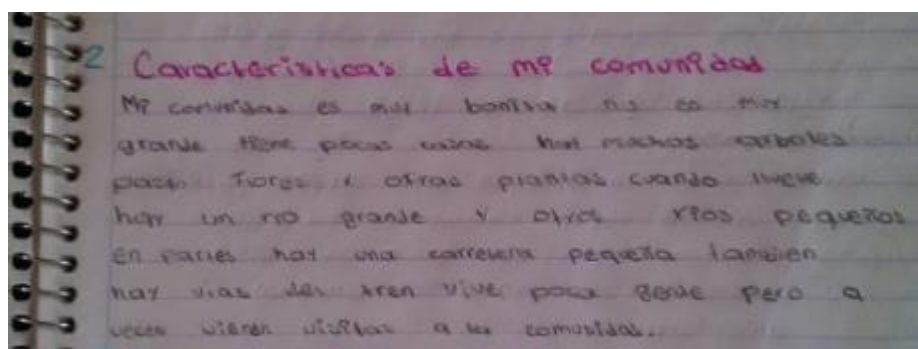 2 Caracteristicas de mi comunidad
Mi comunidad es muy bonita no es muy
grande tiene pocas casas hay muchos arboles
pasto flores y otras plantas cuando llueve
hay un rio grande y otros rios pequeños
en partes hay una carretera pequeña tambien
hay vias del tren vive poca gente pero a
veces vienen visitas a la comunidad.